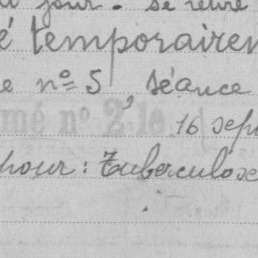 jour. se retire
é temporairem
e n° 5, séance
mé n° 2 le
16 sep
pour : Tuberculose